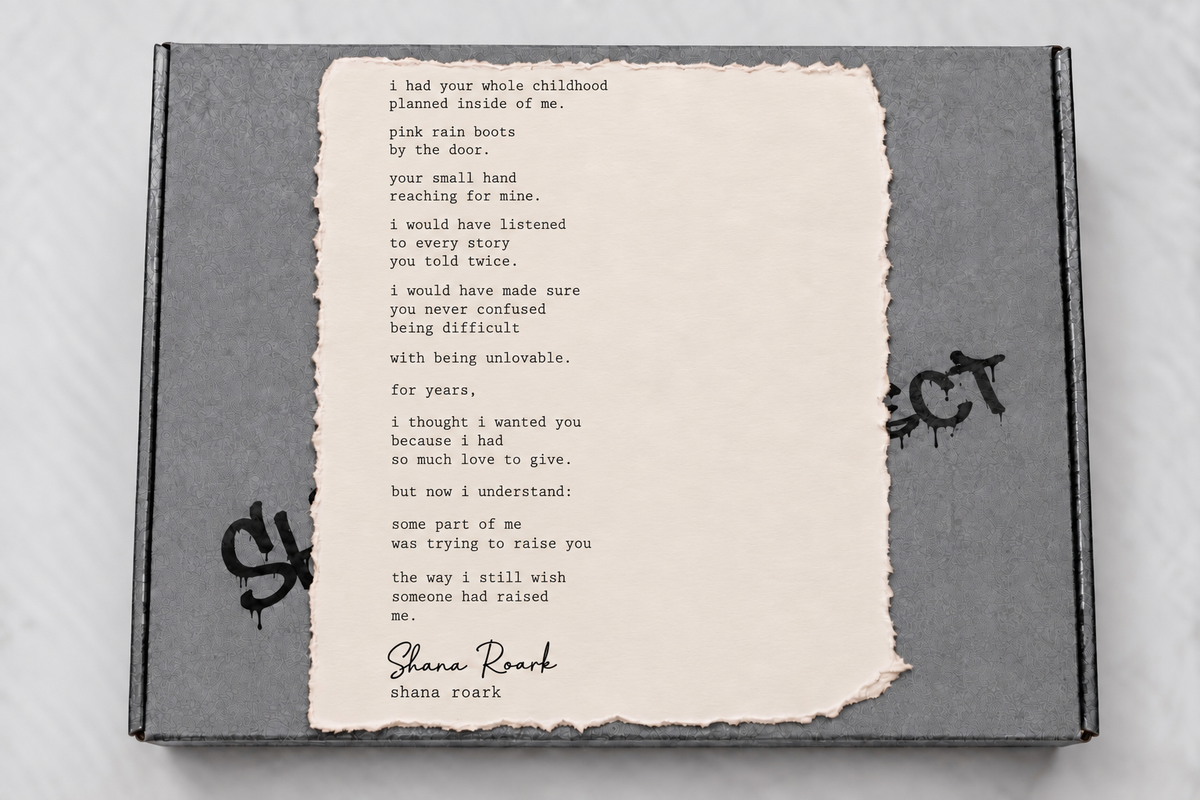 i had your whole childhood
planned inside of me.
pink rain boots
by the door.
your small hand
reaching for mine.
i would have listened
to every story
you told twice.
i would have made sure
you never confused
being difficult
with being unlovable.
for years,
i thought i wanted you
because i had
so much love to give.
but now i understand:
some part of me
was trying to raise you
the way i still wish
someone had raised
me.
Shana Roark
shana roark